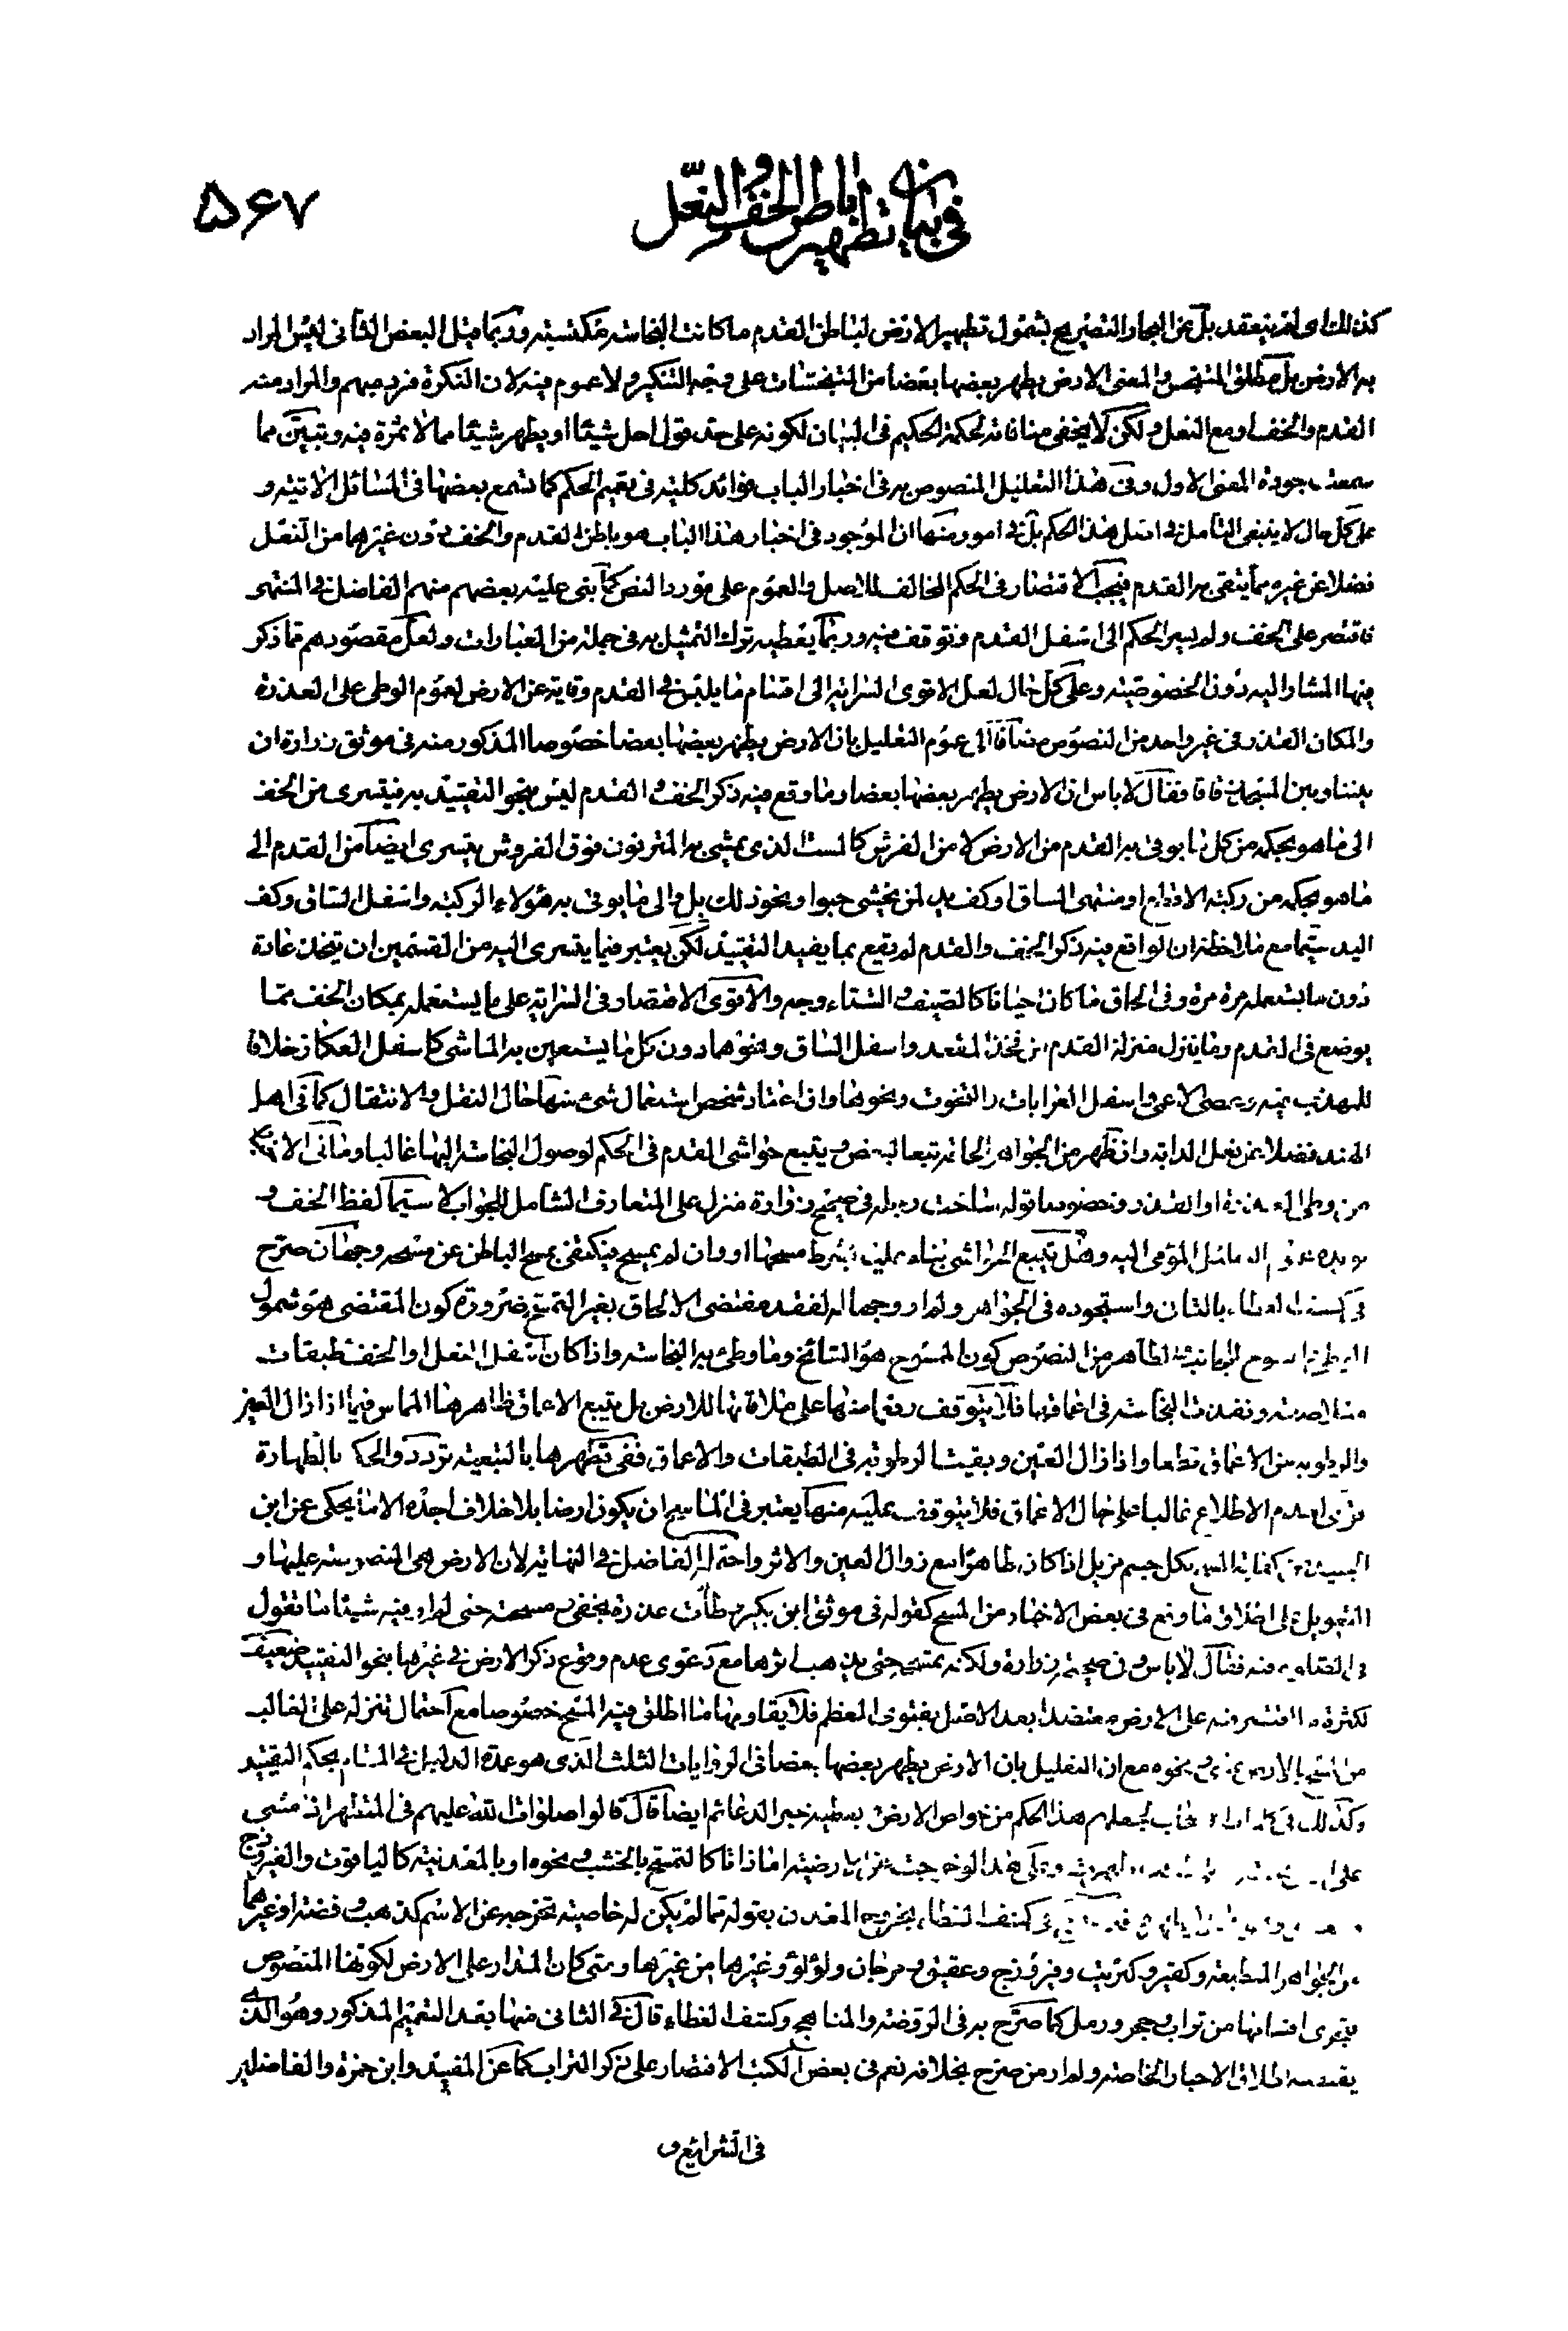 في بيان تطهير باطن الخف والنعل
۵۶۷
كذلك اى لم يتعقد بل عن البحار التصريح بشمول تطهير الارض لباطن القدم ما كانت النجاسة مكتسبة وربما قيل البعض الثانى ليس المراد
به الارض بل مطلق المتنجس والمعنى الارض يطهر بعضها بعضا من المتنجسات على وجه التنكير ولا عموم فيه لان النكرة فرد مبهم والمراد منه
القدم والخف او مع النعل ولكن لا يخفى منافاته لحكمة الحكيم في البيان لكونه على حد قول احل شيئا او يطهر شيئا مما لا ثمرة فيه ويتبين مما
سمعت جودة المعنى الاول وفى هذا التعليل المنصوص به في اخبار الباب فوائد كلية في تعميم الحكم كما تسمع بعضها في المسائل الاتية و
على كل حال لا ينبغى التامل في اصل هذا الحكم بل في امور منها ان الموجود في اخبار هذا الباب هو باطن القدم والخف دون غيرهما من النعل
فضلا عن غيره مما يتقى به القدم فيجب الاقتصار في الحكم المخالف للاصل والعموم على مورد النص كما بنى عليه بعضهم منهم الفاضل في المنتهى
فاقتصر على الخف ولم يسر الحكم الى اسفل القدم وتوقف فيه وربما يعطيه ترك التمثيل به في جملة من العبارات ولعل مقصودهم مما ذكر
فيها المشار اليه دون الخصوصية وعلى كل حال لعل الاقوى السراية الى اقسام ما يلبس في القدم وقاية عن الارض لعموم الوطى على العذرة
والمكان القذر في غير واحد من النصوص مضافا الى عموم التعليل بان الارض يطهر بعضها بعضا خصوصا المذكور منه في موثق زرارة ان
بيننا وبين المسجد زقاقا فقال لا باس ان الارض يطهر بعضها بعضا وما وقع فيه ذكر الخف والقدم ليس بنحو التقييد به فيتسرى من الخف
الى ما هو بحكمه من كل ما يوقى به القدم من الارض لا من الفرش كالست الذى يمشى به المترفون فوق الفروش يتسرى ايضا من القدم الى
ما هو بحكمه من ركبة الاقطع او منتهى الساق او كف يد لمن يمشى حبوا ونحو ذلك بل والى ما يوقى به هؤلاء الركبة واسفل الساق وكف
اليد سيما مع ملاحظة ان الواقع فيه ذكر الخف والقدم لم يقيع بما يفيد التقييد لكن يعتبر فيما يتسرى اليه من القسمين ان يتخذ عادة
دون ما يستعمله مرة مرة وفى الحاق ما كان احيانا كالصيف والشتاء وجه والاقوى الاقتصار في السراية على ما يستعمله بمكان الخف مما
يوضع في القدم وما ينزل منزلة القدم من فخذ المقعد واسفل الساق ونحوهما دون كل ما يستعين به الماشى كاسفل العكاز خلافا
واسفل العرابات والتخوت ونحوها وان اعتاد شخص استعمال شئ منها حال النقل والانتقال كما في اهل
الهند فضلا عن نعل الدابة وان ظهر من الجواهر الحاقه تبعا لبعض ويتبع حواشى القدم في الحكم لوصول النجاسة اليها غالبا وما في الاخبار
من وطى العذرة او القذر وخصوصا قوله ساخت رجله في صحيح زرارة منزل على المتعارف الشامل للجوانب لا سيما لفظ الخف و
اليه وهل تتبع الحواشى بناء عليه بشرط مسحها او وان لم يمسح فيكتفى بمسح الباطن عن مسحه وجهان صرح
بالثانى واستجوده في الجواهر ولم ار وجها له لفقد مقتضى الالحاق بغير المسح ضرورة كون المقتضى هو شمول
الظاهر من النصوص كون الممسوح هو السائخ وما وطئ به النجاسة واذا كان اسفل النعل او الخف طبقات
متلاصقة ونفذت النجاسة في اعماقها فلا يتوقف رفعها منها على ملاقاتها للارض بل يتبع الاعماق ظاهرها المماس فيما اذا زال العين
والرطوبة من الاعماق قطعا واذا زال العين وبقيت الرطوبة في الطبقات والاعماق ففى تطهرها بالتبعية تردد والحكم بالطهارة
عدم الاطلاع غالبا على حال الاعماق فلا يتوقف عليه منها يعتبر في الماسح ان يكون ارضا بلا خلاف اجده الا ما يحكى عن ابن
كفاية المسح بكل جسم مزيل اذا كان طاهرا مع زوال العين والاثر واحتمله الفاضل في النهاية لان الارض هى المنصوصة عليها و
التعويل على اطلاق ما وقع في بعض الاخبار من المسح كقوله في موثق ابن بكير وطأت عذرة بخفى ومسحته حتى لم ار فيه شيئا ما تقول
في الصلوة فيه فقال لا باس وفى صحيحة زرارة ولكنه يمسحها حتى يذهب اثرها مع دعوى عدم وقوع ذكر الارض في غيرها بنحو التقييد ضعيف
لكثرة ما اقتصر فيه على الارض معتضدا بعد الاصل بفتوى المعظم فلا يقاومها ما اطلق فيه المسح خصوصا مع احتمال تنزله على الغالب
من المسح بالارض ونحوه مع ان التعليل بان الارض يطهر بعضها بعضا في الروايات الثلث الذى هو عمدة الدليل في المقام بحكم التقييد
وكذلك هذا الحكم من خواص الارض يعطيه خبر الدعائم ايضا قال قالوا صلوات الله عليهم في المتطهر اذا مشى
على هذا الوجه اما ذاتا كالتمسح بالخشب ونحوه او بالمعدنية كالياقوت والفيروزج
كشف الغطاء بخروج المعدن بقوله مما لم يكن له خاصية تخرجه عن الاسم كذهب وفضة او غيرهما
من الجواهر المنطبعة وكقير وكبريت وفيروزج وعقيق ومرجان ولؤلؤ وغيرها من غيرها ومتى كان المدار على الارض لكونها المنصوص
اقسامها من تراب وحجر ورمل كما صرح به في الروضة والمناهج وكشف الغطاء قال في الثانى منها بعد التعميم المذكور وهو الذى
يقتضيه اطلاق الاخبار الخاصة ولم ار من صرح بخلافه نعم في بعض الكتب الاقتصار على ذكر التراب كما عن المفيد وابن حمزة والفاضلين
في الشرايع و